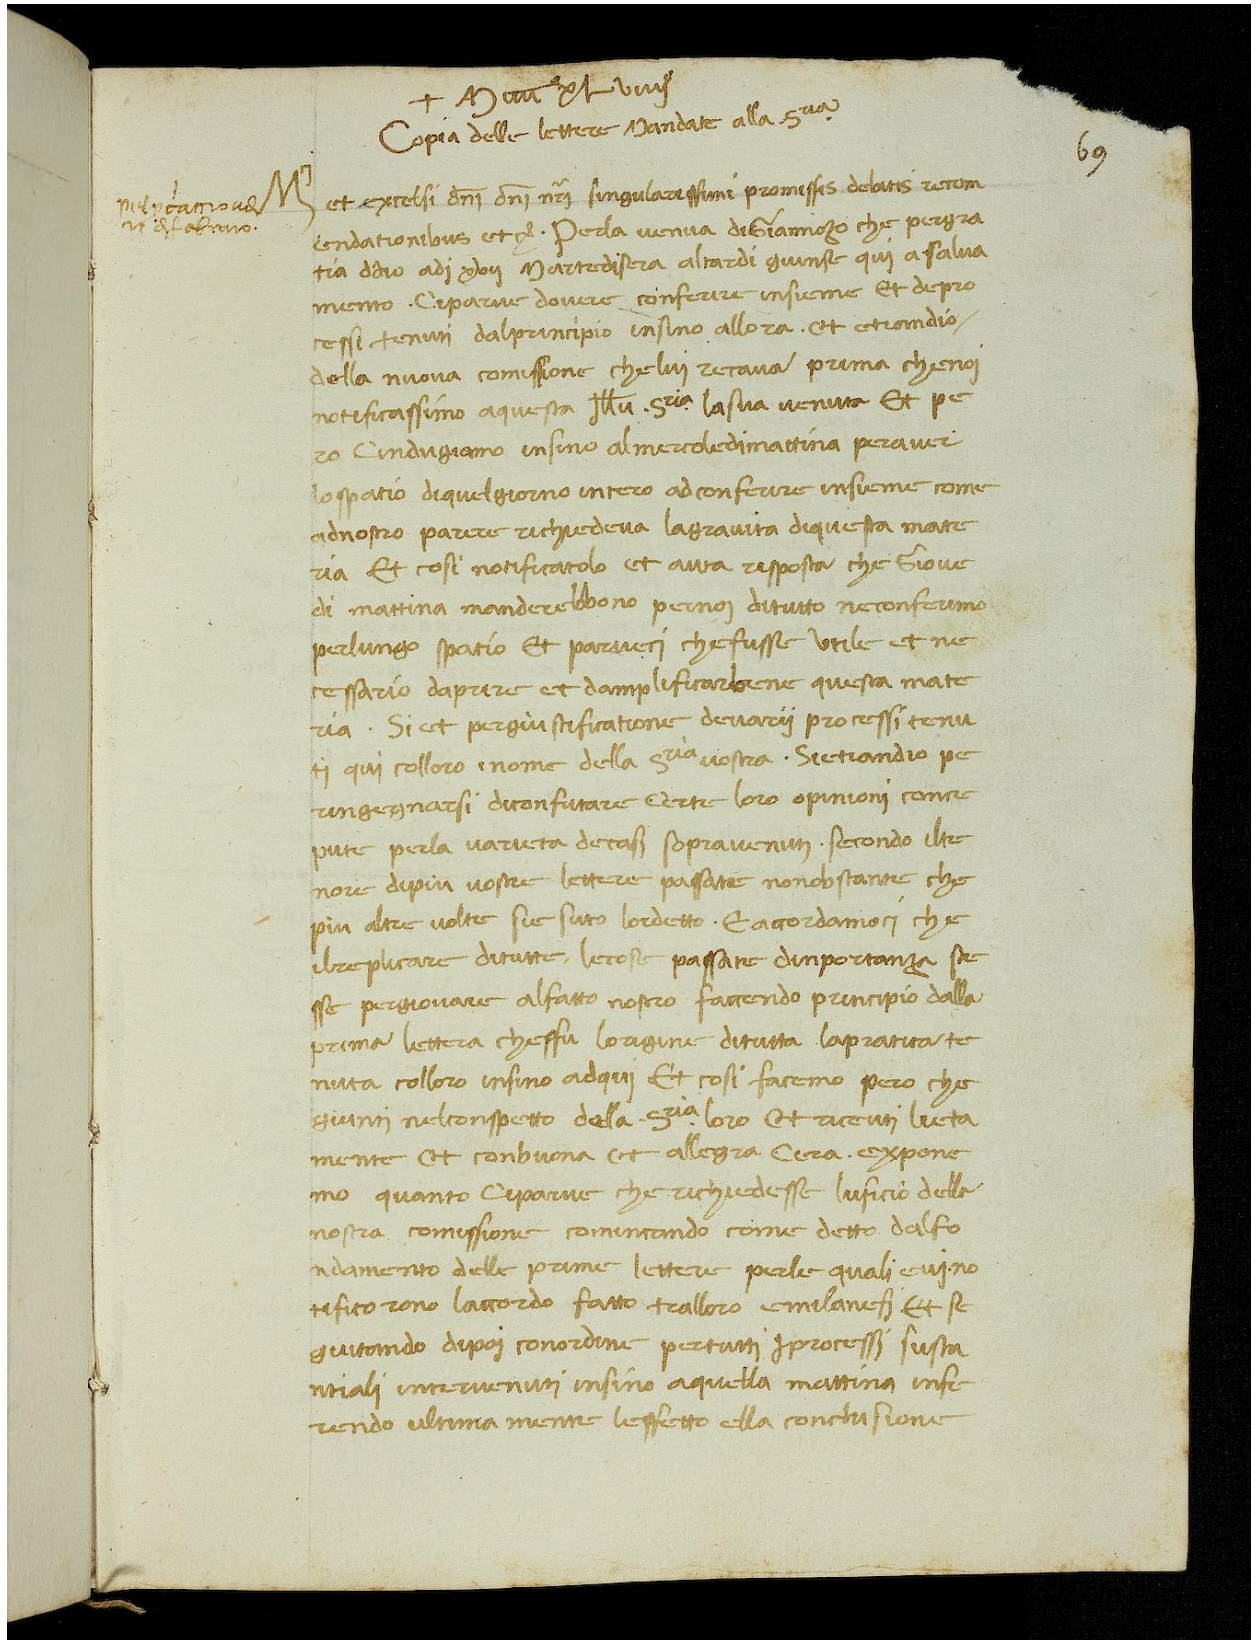 + Mcccc°xL viiij
Copia delle lettere Mandate alla Sria.
69
Mci et excelsi dñi dñi nr̃i singularissimi promissis debitis recom
endationibus etc̃. Perla venuta diGiannozo che pergra
tia ddio adj xvij Martedisera altardi giunse qui assalva
mento. Ciparve dovere conferire insieme Et depro
cessi tenuti dalprincipio insino allora. Et etiamdio
della nuova comissione chelui recava prima chenoj
notificassimo aquesta Illu. Sria. lasua venuta Et pe
ro Cindugiamo insino almercoledimattina peraver
lospatio diquelgiorno intero adconferire insieme come
adnostro parere richiedeva lagravita diquesta mate
ria Et cosi notificatolo et auta risposta che Giove
di mattina manderebbono pernoj ditutto neconferimo
perlungo spatio Et parveci chefusse Utile et ne
cessario daprire et damplificarbene questa mate
ria. Si et pergiustificatione devarij processi tenu
ti qui colloro inome della Sria vostra. Sietiandio pe
ringegnarsi diconfutare Certe loro opinioni conce
pute perla varieta decasi sopravenuti. secondo ilte
nore dipiu vostre lettere passate nonobstante che
piu altre volte sie suto lordetto. E accordamoci che
ilreplicare ditutte lecose passate dinportanza ste
sse pergiovare alfatto nostro faccendo principio dalla
prima lettera cheffu lorigine ditutta lapratica te
nuta colloro insino adqui Et cosi facemo pero che
giunti nelconspetto della Sria. loro Et riceuti lieta
mente Et conbuona Et allegra Cera. expone
mo quanto Ciparve che richiedesse luficio della
nostra comissione cominciando come detto dalfo
ndamento delle prime lettere perle quali evi no
tificorono laccordo fatto tralloro emilanesi Et se
guitando dipoj conordine pertutti Iprocessi susta
ntiali intervenuti insino aquella mattina infe
rendo ultimamente leffetto ella conclusione